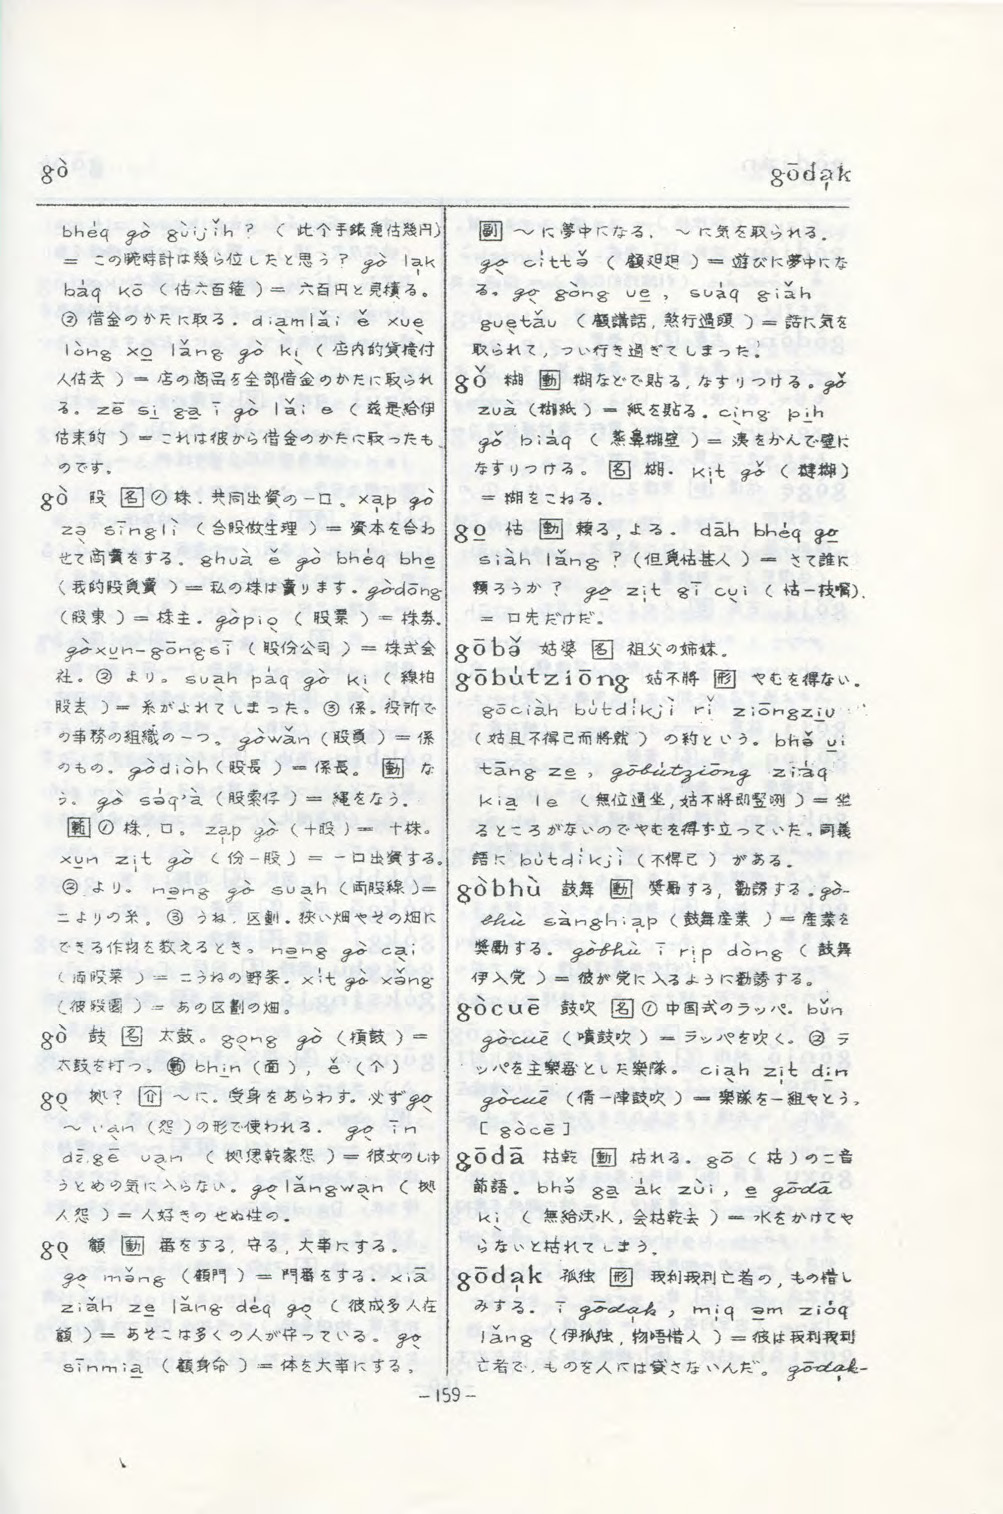 gò
gōda̍k
bhéq gò gùijih ? ( 此个手錶覓估幾円)
= この腕時計は幾ら位したと思う? gò la̍k
bàq kō ( 估六百箍 ) = 六百円と見積る。
② 借金のかたに取る. diạmlǎi ě xuẹ
lòng xo̱ lǎng gò kị ( 店内的貨攏付
人估去 ) = 店の商品を全部借金のかたに取られ
る. zē si̱ ga̱ ī gò lǎi e ( 兹是給伊
估来的 ) = これは彼から借金のかたに取ったも
のです。
gò 股 [名] ① 株. 共同出資の一口。 xạp gò
zə̣ sīnglì ( 合股做生理 ) = 資本を合わ
せて商賣をする. ghuà ě gò bhéq bhe̱
(我的股覓賣 ) = 私の株は賣ります. gòdōng
(股東 ) = 株主. gòpiọ ( 股票 ) = 株券.
gòxu̱n-gōngsī ( 股份公司 ) = 株式会
社. ② より。 suạh páq gò kị ( 線拍
股去 ) = 糸がよれてしまった。 ③ 係。役所で
の事務の組織の一つ。 gòwǎn (股員) = 係
のもの. gòdiòh (股長 ) = 係長。 [動] な
う。 gò sóq'à (股索仔) = 縄をなう.
[数] ① 株, 口。 za̍p gò (十股) = 十株。
xu̱n zi̍t gò ( 份一股 ) = 一口出資する。
② より。 nə̱ng gò suạh (両股線) =
二よりの糸。 ③ うね. 区劃. 狭い畑やその畑に
できる作物を数えるとき。 nə̱ng gò cạị
( 両股菜 ) = 二うねの野菜. xít gò xə̌ng
(彼股園 ) = あの区劃の畑。
gò 鼓 [名] 太鼓。 gọng gò (摃鼓 ) =
太鼓を打つ。 (数) bhi̱n (面 ), ě (个)
gọ 拠? [介] ～に. 受身をあらわす. 必ず gọ
～ uạn (怨 ) の形で使われる. gọ īn
dā.gē uạn ( 拠偲乾家怨 ) = 彼女のしゅ
うとめの気に入らない. gọ lǎngwạn ( 拠
人怨 ) = 人好きのせぬ性の.
gọ 顧 [動] 番をする, 守る, 大事にする.
gọ mə̌ng ( 顧門 ) = 門番をする. xiā
ziǎh ze̱ lǎng deq gọ ( 彼成多人在
顧 ) = あそこは多くの人が守っている。 gọ
sīnmia̱ ( 顧身命 ) = 体を大事にする.
[副] ～に夢中になる. ～に気を取られる.
gọ cíttə̌ ( 顧𨑨迌 ) = 遊びに夢中にな
る。 gọ gòng ue̱ , suáq giǎh
guẹtǎu ( 顧講話, 煞行過頭 ) = 話に気を
取られて, つい行き過ぎてしまった。
gǒ 糊 [動] 糊などで貼る, なすりつける. gǒ
zuà (糊紙 ) = 紙を貼る. cịng pi̱h
gǒ biáq ( 蒸鼻糊壁 ) = 洟をかんで壁に
なすりつける。 [名] 糊. ki̍t gǒ ( 糊)
= 糊をこねる.
go̱ 怙 [動] 頼る, よる. dāh bhéq go̱
siàh lǎng ? (但覓怙甚人 ) = さて誰に
頼ろうか? go̱ zi̍t gī cụi ( 怙一枝嘴).
= 口先だけだ。
gōbə̌ 姑婆 [名] 祖父の姉妹.
gōbútziōng 姑不將 [形] やむを得ない.
gōciàh bútdi̍kjì rǐ ziōngzi̱u
( 姑且不得已而將就 ) の約という. bhə̌ u̱i
tāng ze̱ , gōbútziōng ziáq
kia̱ le ( 無位通坐,姑不將即竪咧 ) = 坐
るところがないのでやむを得ず立っていた. 同義
語に bútdi̍kjì (不得已 ) がある.
gòbhù 鼓舞 [動] 奨勵する, 勸誘する. gò-
bhù sànghia̍p (鼓舞産業 ) = 産業を
奨勵する. gòbhù ī ri̍p dòng ( 鼓舞
伊入党 ) = 彼が党に入るように勸誘する。
gòcuē 鼓吹 [名] ① 中国式のラッパ. bǔn
gòcuē ( 噴鼓吹 ) = ラッパを吹く。 ② ラ
ッパを主樂器とした樂隊。 ciạh zi̍t di̱n
gòcuē ( 倩一陣鼓吹 ) = 樂隊を一組やとう。
[ gòcē ]
gōdā 枯乾 [動] 枯れる. gō ( 枯 ) の二音
節語. bhə̌ ga̱ ák zùi , e̱ gōdā
kị ( 無給沃水, 会枯乾去 ) = 水をかけてや
らないと枯れてしまう.
gōda̍k 孤独 [形] 我利我利亡者の, もの惜し
みする. ī gōda̍k , mi̍q əm zióq
lǎng (伊孤独, 物唔借人 ) = 彼は我利我利
亡者で, ものを人には貸さないんだ。 gōda̍k-
-159-